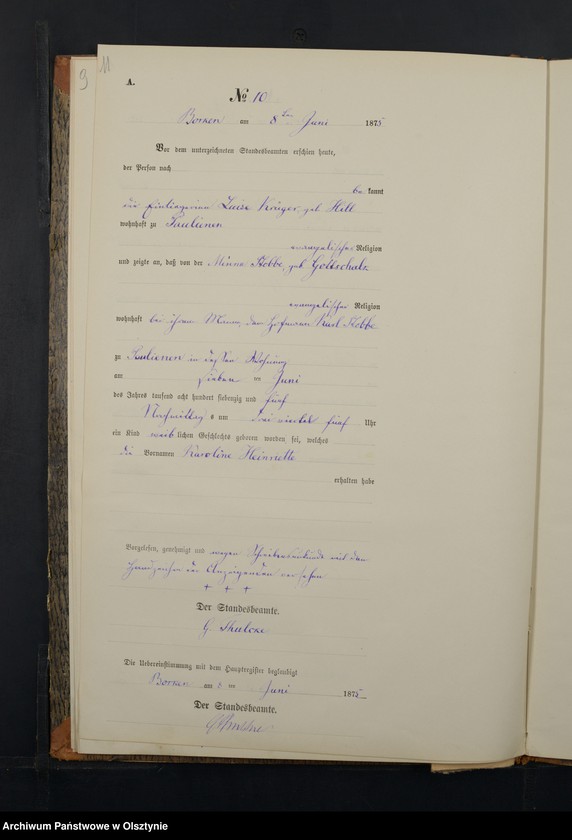 9
11
A.
No 10
Borken am 8ten Juni 1875
Vor dem unterzeichneten Standesbeamten erschien heute,
der Person nach
bekannt
die Luise Krüger, geb. Hill
wohnhaft zu Paulienen
evangelischer Religion
und zeigte an, daß von der Minna Stobbe, geb. Gottschalk
evangelischer Religion
wohnhaft bei ihrem Mann, dem Hofmann Karl Stobbe
zu Paulienen in dessen Wohnung
am sieben ten Juni
des Jahres tausend acht hundert siebenzig und fünf
Nachmittags um drei viertel fünf Uhr
ein Kind weiblichen Geschlechts geboren worden sei, welches
die Vornamen Karoline Heinriette
erhalten habe
Vorgelesen, genehmigt und wegen Schreibensunkunde mit den
Handzeichen der Anzeigenden versehen
+ + +
Der Standesbeamte.
Die Uebereinstimmung mit dem Hauptregister beglaubigt
Borken am 8ten Juni 1875
Der Standesbeamte.
Archiwum Państwowe w Olsztynie